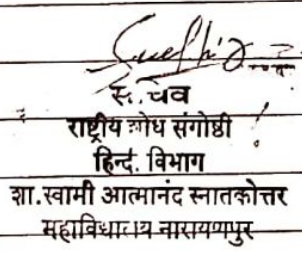 Sudhir
स. चव
राष्ट्रीय शोध संगोष्ठी
हिन्द. विभाग
शा.स्वामी आत्मानंद स्नातकोत्तर
महाविधालय नारायणपुर